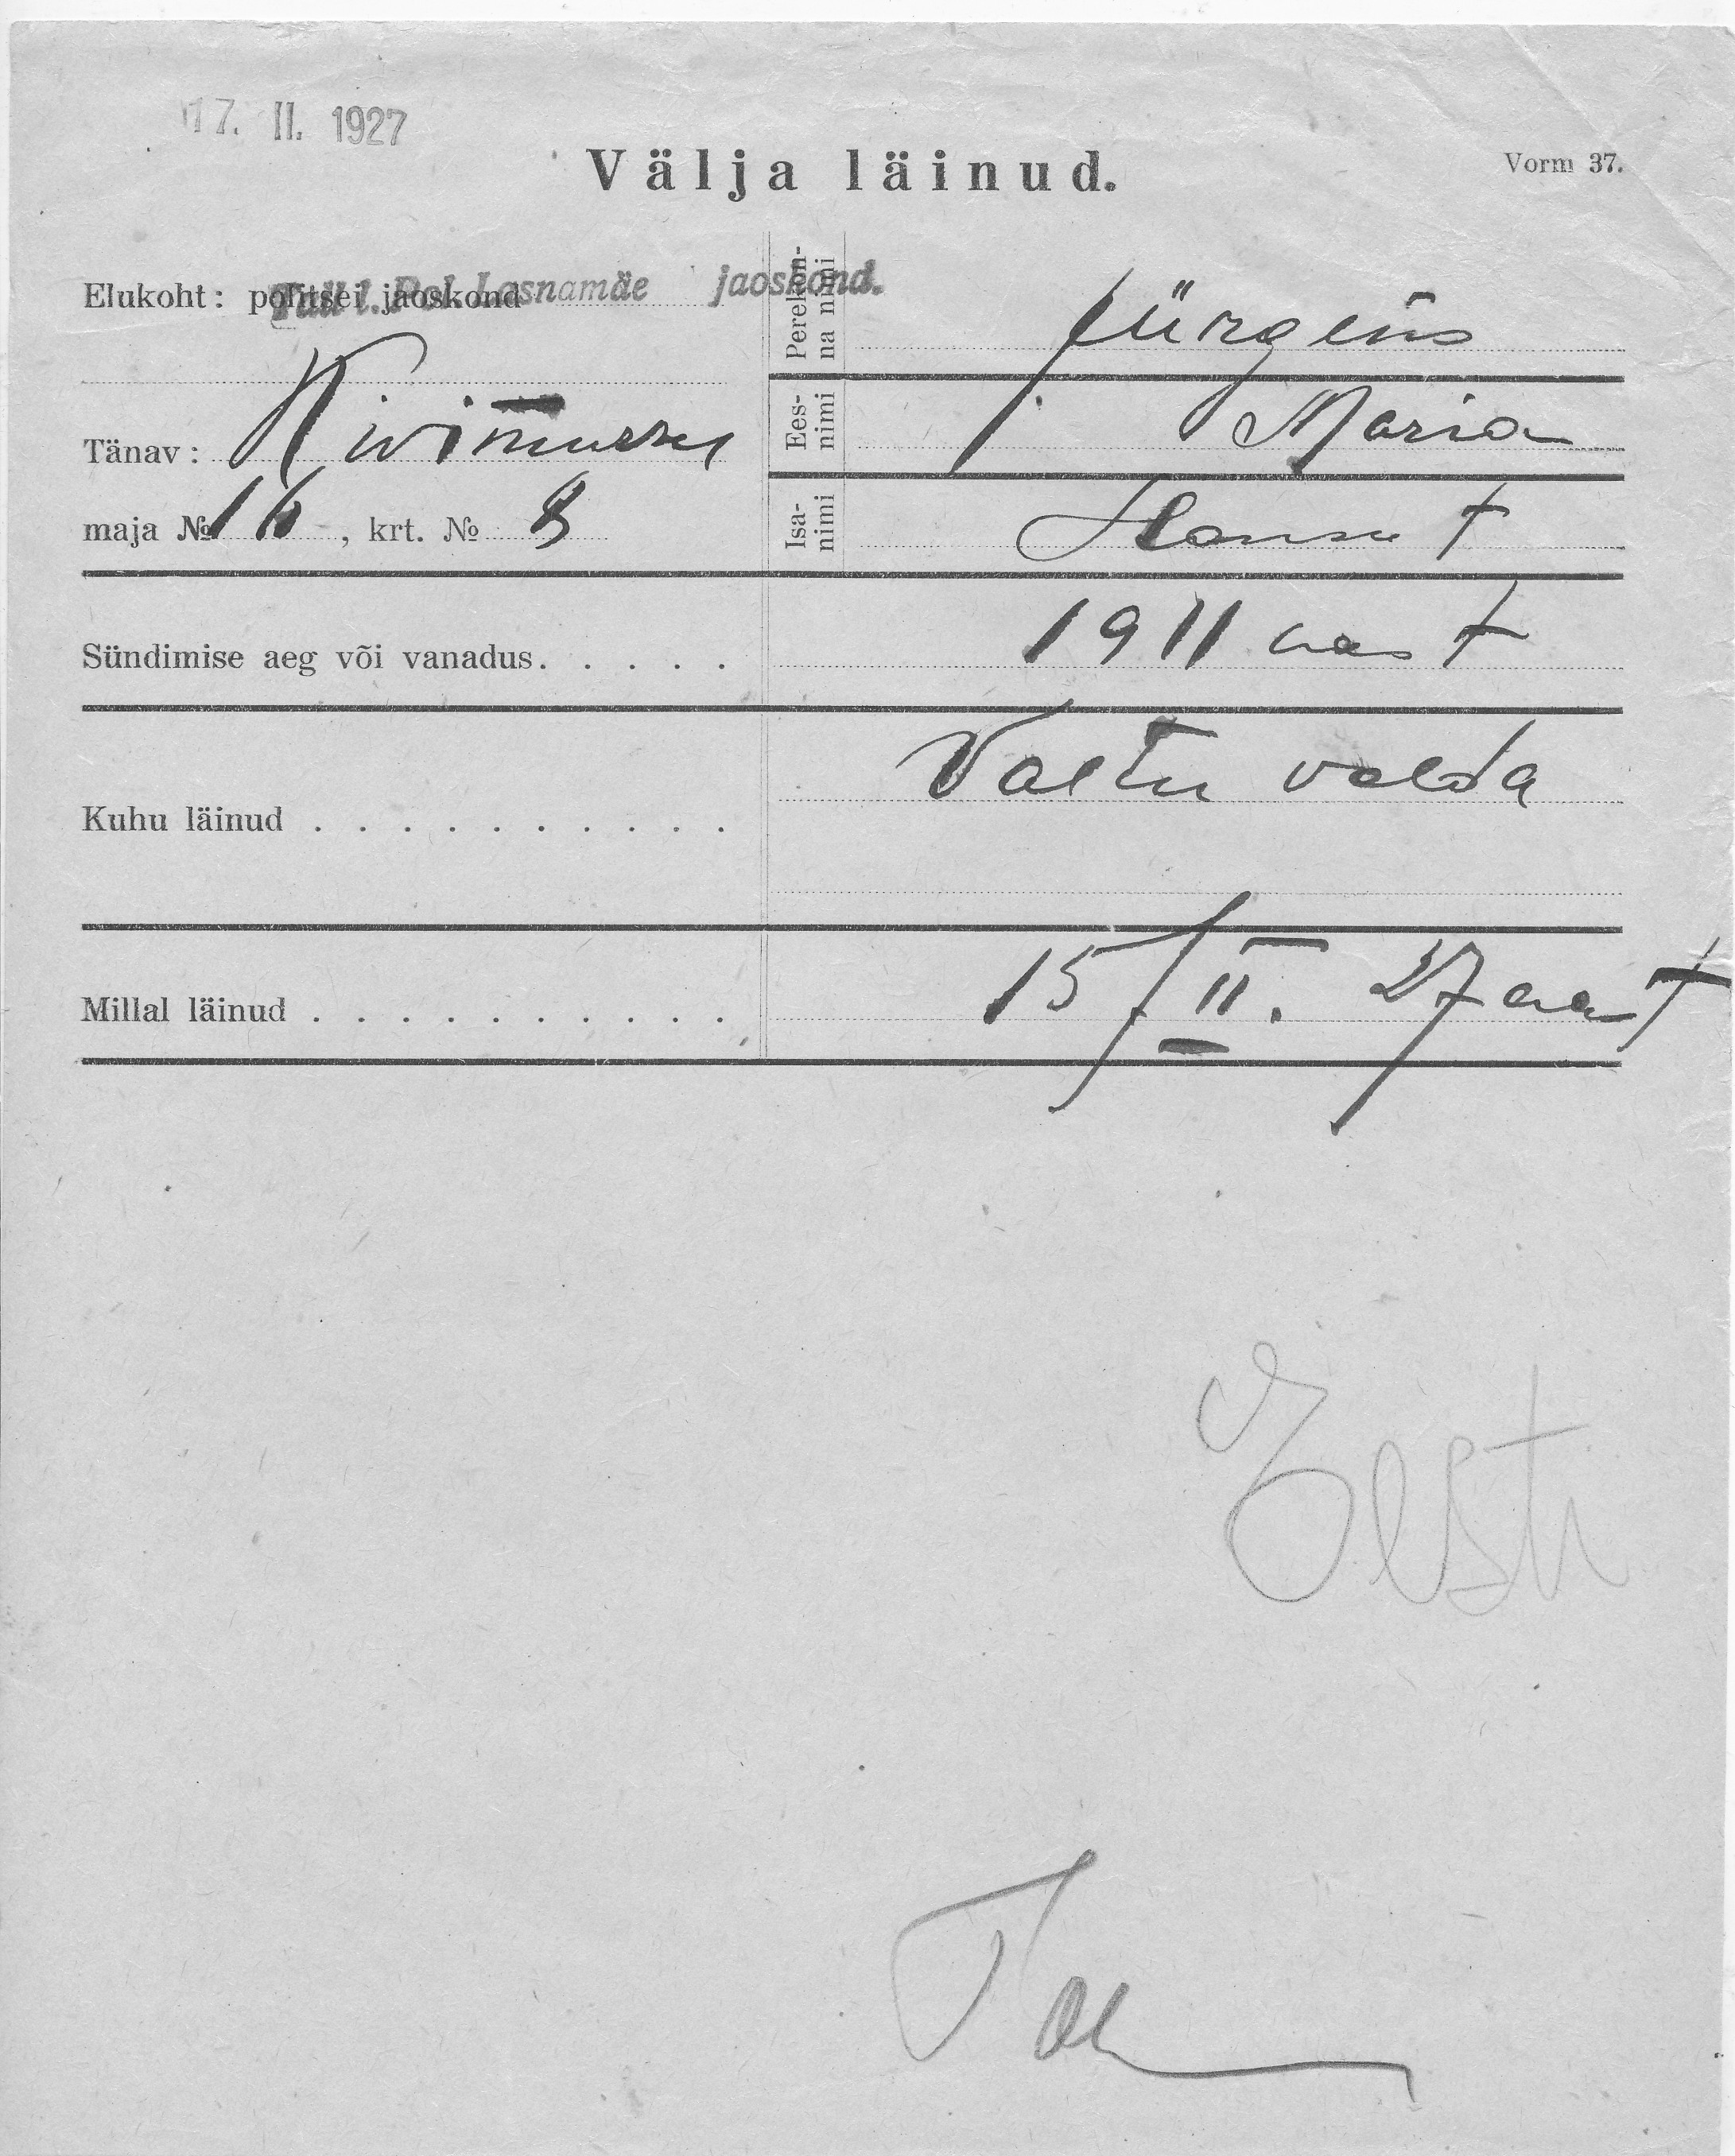 17. II. 1927
Välja läinud.
Vorm 37.
Elukoht: politsei jaoskond
Tall l. Pol. Lasnamäe jaoskond.
Tänav: Kivimurru
maja № 16, krt. № 8
Perekonna nimi Jürgens
Eesnimi Maria
Isanimi Hansu t
Sündimise aeg või vanadus. . . . . 1911 aas t
Kuhu läinud . . . . . . . . . . Valtu valda
Millal läinud . . . . . . . . . . 15/II. 27 aast
Eesti